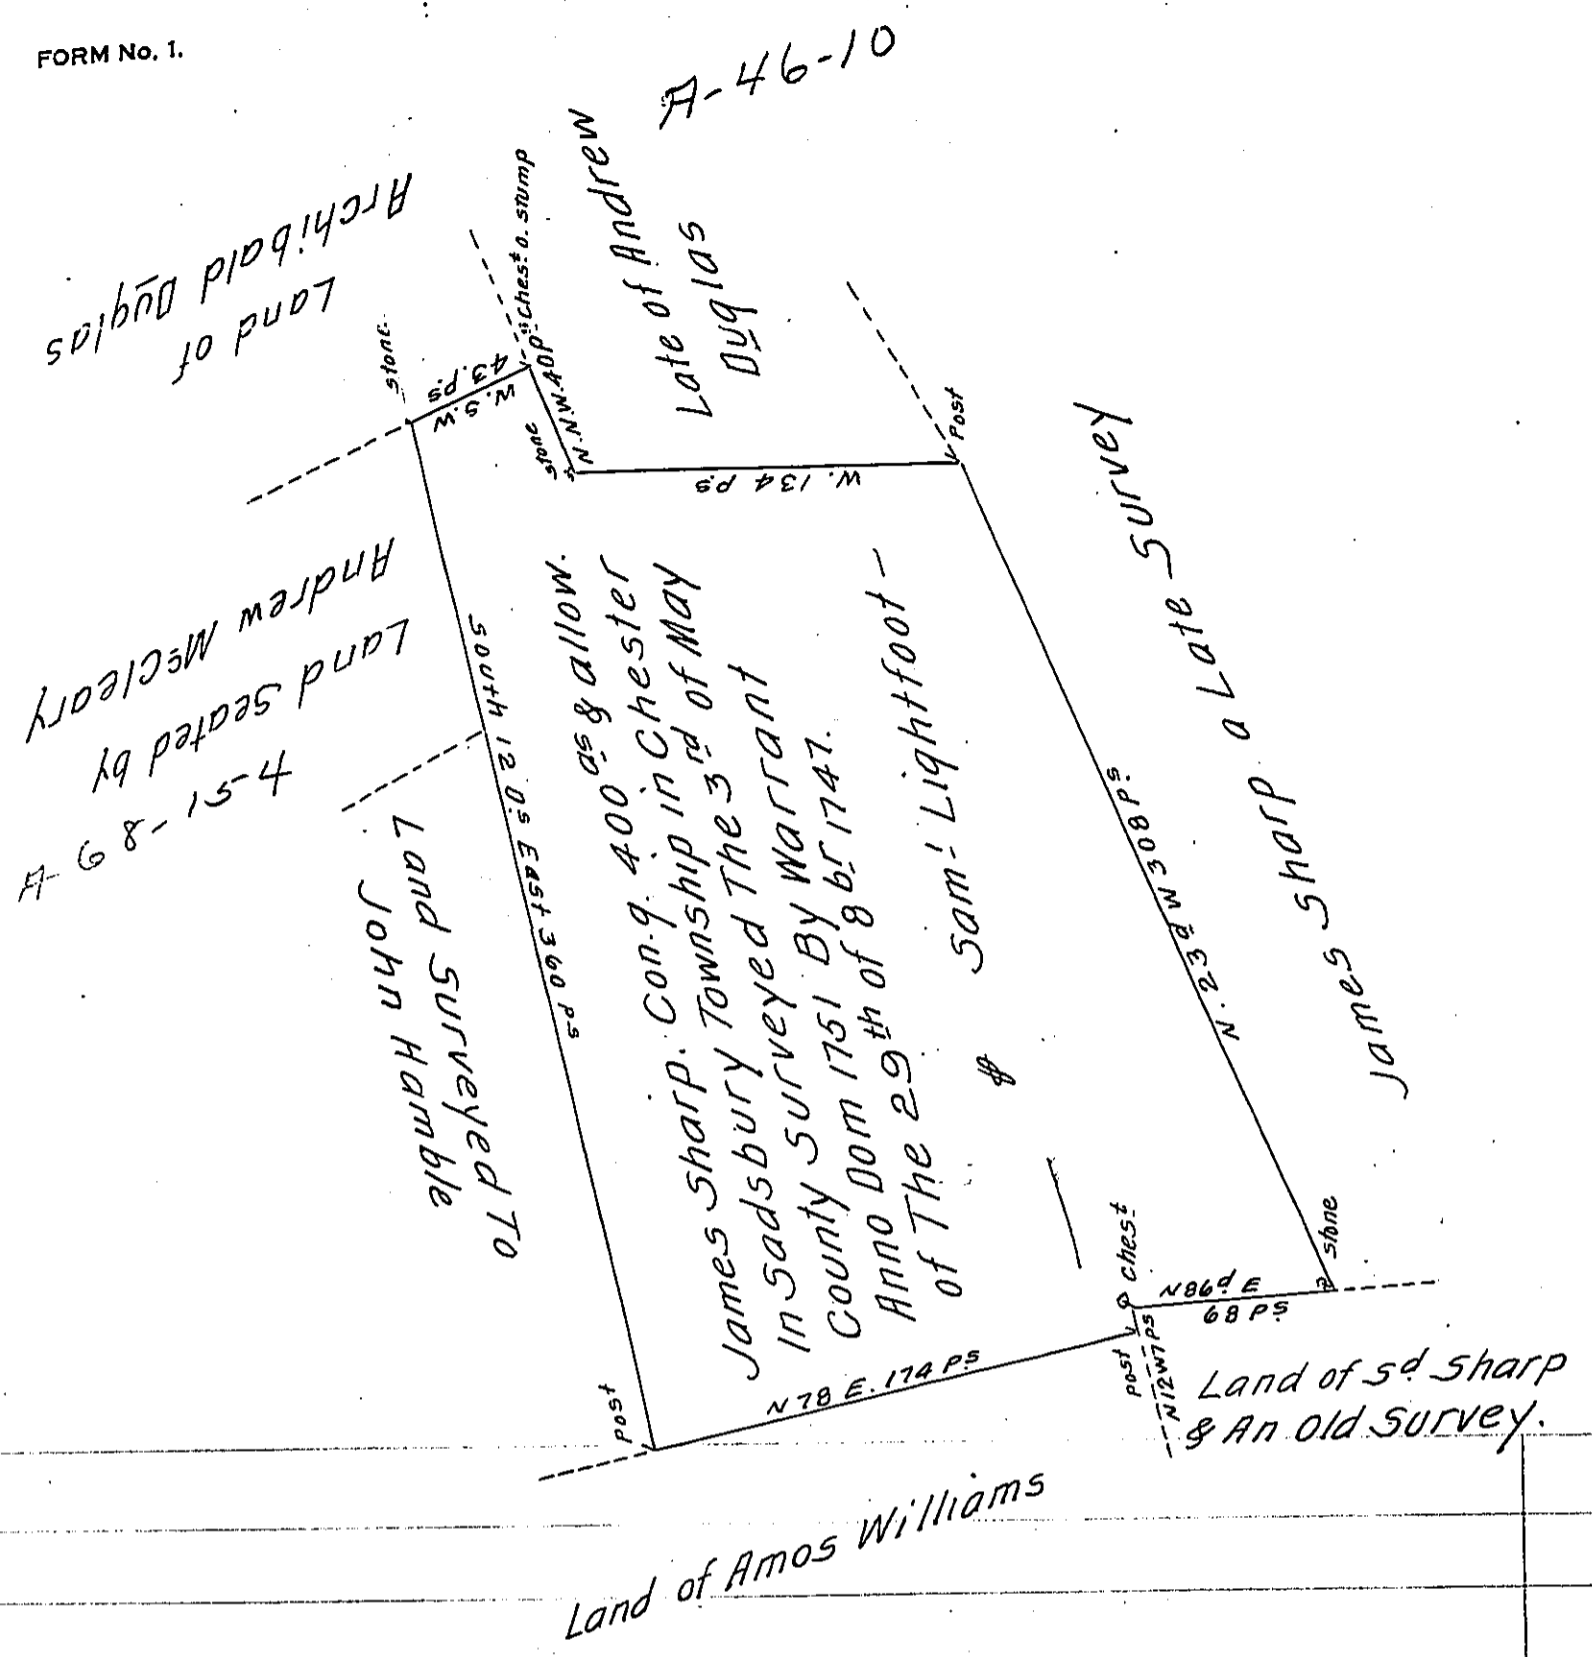 FORM No. 1.
A-46-10
Land of
Archibald Duglas
Late of Andrew
Duglas
stone
W.S.W
43. ps
Chest. o. stump
N.N.W. 40 P.s
stone
W. 134 Ps
Post
A-51-89
Land Seated by
Andrew McCleary
South 12 Ds East 360 Ps
Land Surveyed To
John Hamble
James Sharp. Con.g. 400 as & allow.
In Sadsbury Township in Chester
County Surveyed The 3rd of May
Anno Dom 1751 By Warrant
of The 29th of 8 br 1747.
Saml Lightfoot-
N. 23d W 308 Ps
James Sharp a Late Survey
stone
N86d E
68 Ps
chest
post
N12W7Ps
N 78 E. 174 Ps
post
Land of sd Sharp
& An Old Survey.
Land of Amos Williams